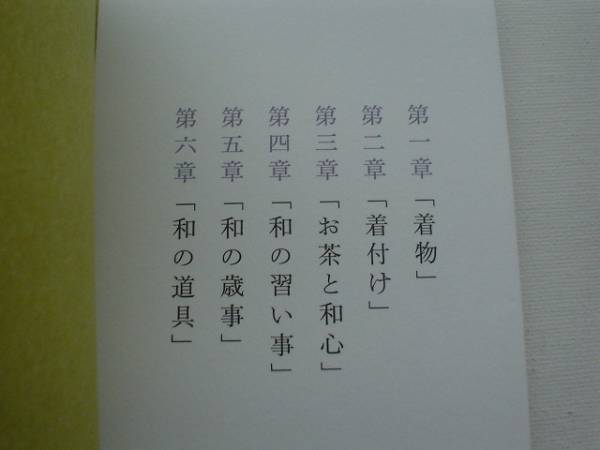 第一章「着物」
第二章「着付け」
第三章「お茶と和心」
第四章「和の習い事」
第五章「和の歳事」
第六章「和の道具」